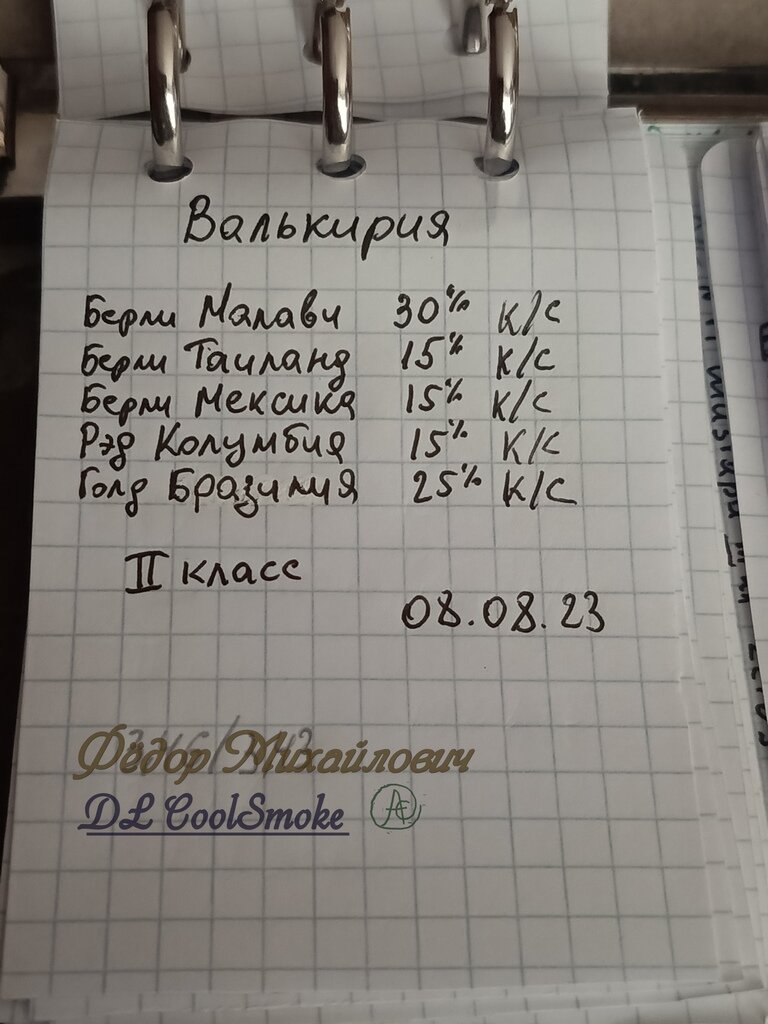 Валькирия
Берли Малави 30% к/с
Берли Таиланд 15% к/с
Берли Мексика 15% к/с
Рэд Колумбия 15% к/с
Голд Бразилия 25% к/с
II класс
08.08.23
Фёдор Михайлович
DL CoolSmoke